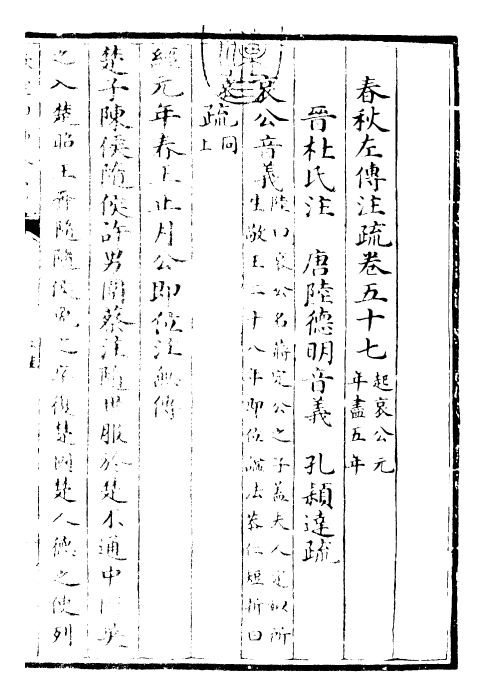 春秋左傳注疏卷五十七起哀公元年盡五年
晉杜氏注　唐陸德明音義　孔穎達疏
哀公音義陸曰哀公名蔣定公之子蓋夫人定姒所生敬王二十八年即位諡法恭仁短折曰哀
疏同上
經元年春王正月公即位注無傳
楚子陳侯隨侯許男圍蔡注隨世服於楚不通中國吳
之入楚昭王奔隨隨侯免之卒復楚國楚人德之使列